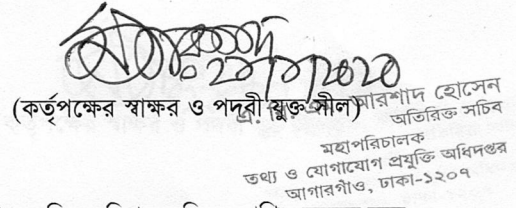 (কর্তৃপক্ষের স্বাক্ষর ও পদবী যুক্ত সীল)
আরশাদ হোসেন
অতিরিক্ত সচিব
মহাপরিচালক
তথ্য ও যোগাযোগ প্রযুক্তি অধিদপ্তর
আগারগাঁও, ঢাকা-১২০৭